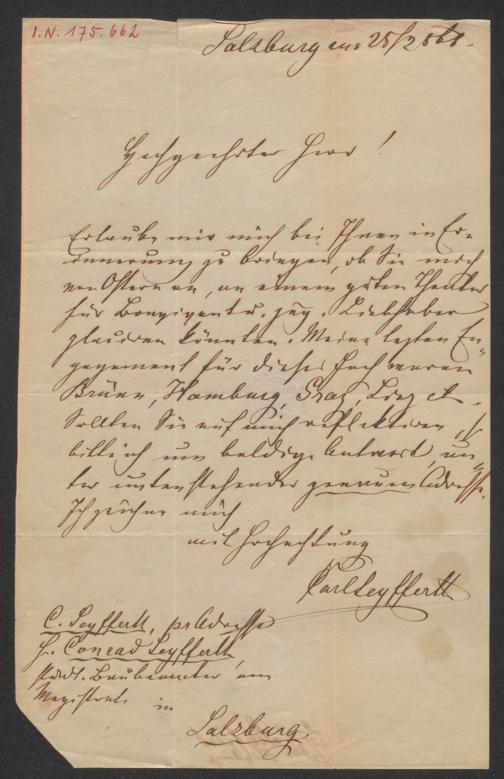 I.N. 175.662
Salzburg am 25/2 861.
Hochgeehrter Herr!
Erlaube mir mich bei Ihnen in Er-
innerung zu bringen, ob Sie mich
von Ostern an, an einem guten Theater
für Bonvivant u. jug. Liebhaber
placiren könnten. Meine lezten En-
gagement für dieses Fach waren
Brünn, Hamburg, Graz, Linz et.
Sollten Sie auf mich reflektiren, so
bitte ich um baldige Antwort, un-
ter untenstehender genauen Adresse.
Ich zeichne mich
mit Hochachtung
Carl Seyffertt
C. Seyffertt, pr Adresse
H. Conrad Seyffertt,
städt. Baubeamter am
Magistrat in
Salzburg.